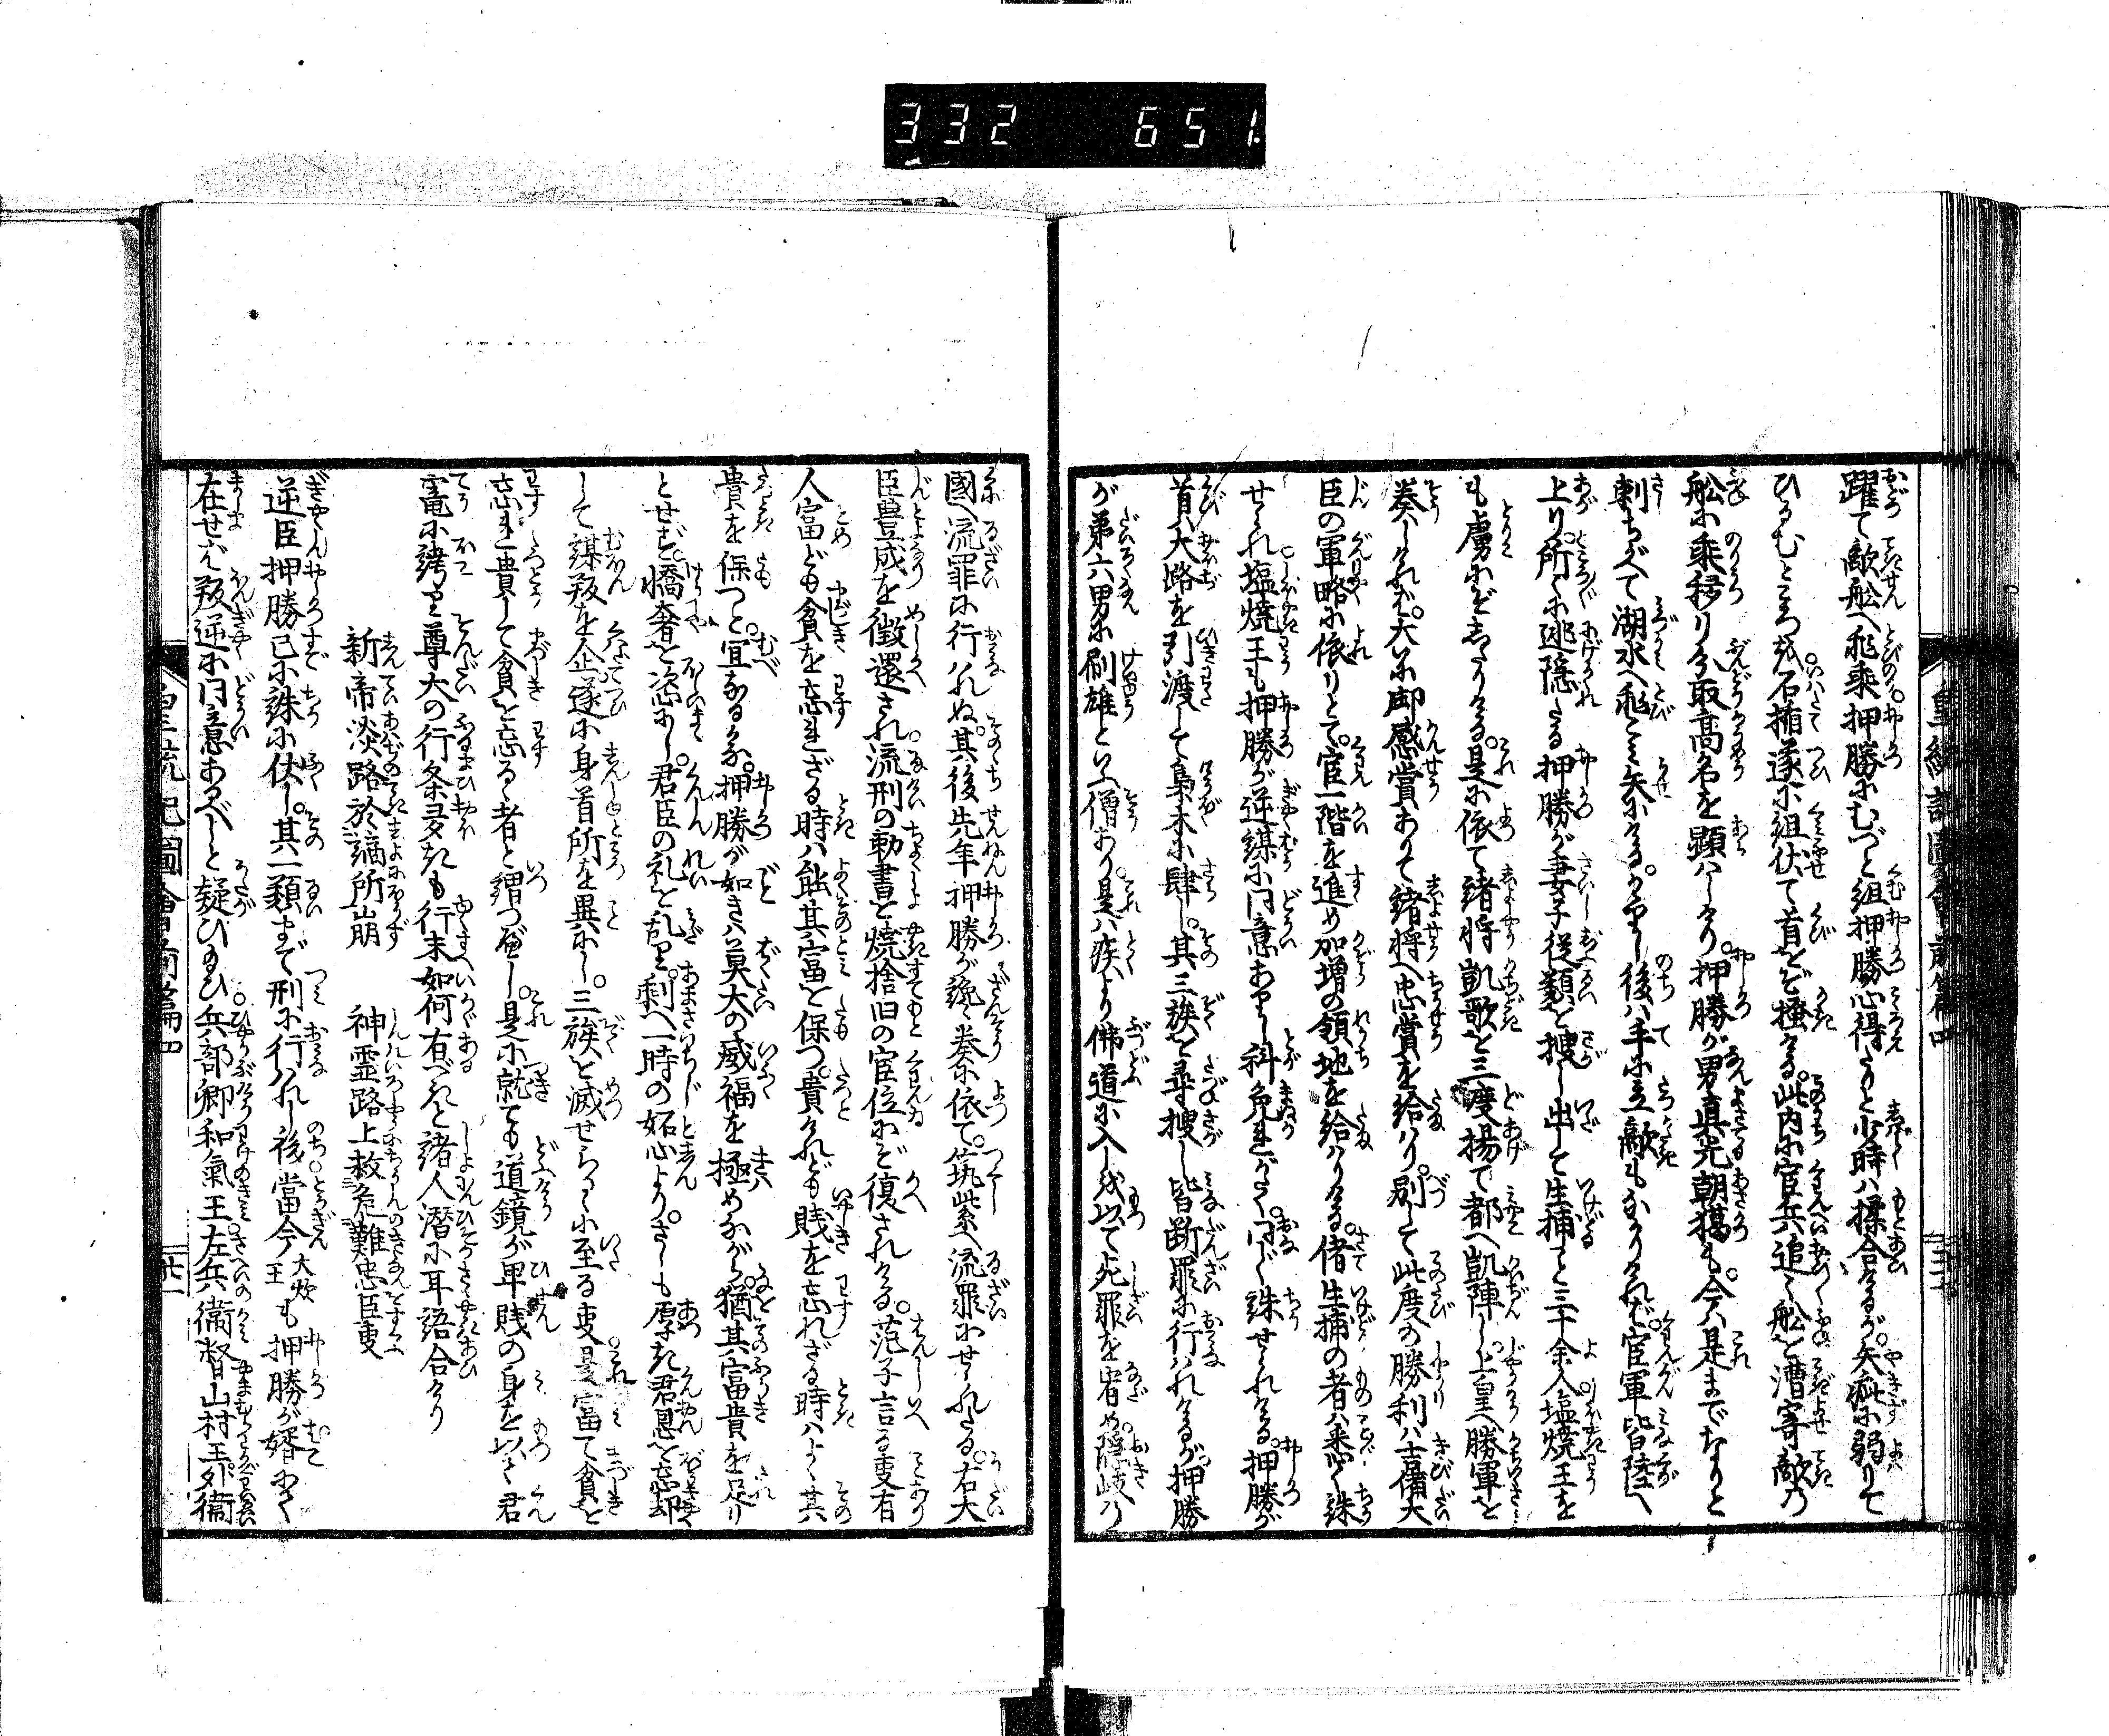 332 651
躍て敵舩へ飛乗押勝にむづと組押勝心得たりと少時ハ揉合けるが矢疵に弱りて
ひるむところを石楯遂に組伏て首をぞ掻ける此内に官兵追々舩を漕寄敵の
舩に乗移り分取高名を顕ハしけり押勝が男真光朝獦も今ハ是までなりと
刺ちがへて湖水へ飛とミ矢にける後ハ手に立敵もなかりけれバ官軍皆陸へ
上り所々に逃隠たる押勝が妻子従類を捜し出して生捕こと三十余人塩焼王を
も虜にぞしたりける是に依て諸将凱歌を三度揚て都へ凱陣し上皇へ勝軍を
奏しけれバ大に御感賞ありて諸将へ忠賞を給ハり別して此度の勝利ハ吉備大
臣の軍略に依りとて官一階を進め加増の領地を給ハりける偖生捕の者ハ悉く誅
せられ塩焼王も押勝が逆謀に同意ありし科免れがたく同じく誅せられける押勝が
首ハ大路を引渡して梟木に肆し其三族を尋捜し皆断罪に行ハれけるが押勝
が弟六男に刷雄といふ僧あり是ハ疾より佛道に入しを以て死罪を宥め隠岐の
國へ流罪に行ハれぬ其後先年押勝が讒奏に依て筑紫へ流罪せられたる右大
臣豊成を徴還され流刑の勅書を焼捨旧の官位にぞ復されける范子言る事有
人富ども貪を忘れざる時ハ能其富を保つ貴けれども賎を忘れざる時ハよく其
貴を保つと宜なるかな押勝が如きハ莫大の威福を極めながら猶其富貴を足り
とせず驕奢を恣にし君臣の礼を乱り剰へ一時の妬心よりさしも厚き君恩を忘却
して謀叛を企遂に身首所を異にし三族を滅せらるゝに至る事是富て貪を
忘れ貴して貪を忘るゝ者と謂つべし是に就ても道鏡が卑賎の身を以て君
寵に誇り尊大の行条多きも行末如何有べきと諸人潜に耳語合けり
新帝淡路於謫所崩　神霊路上救危難忠臣事
逆臣押勝已に誅に伏し其一類まで刑に行ハれし後當今大炊王も押勝が婿にて
在せバ叛逆に同意あるべしと疑ひ給ひ兵部卿和氣王左兵衛督山村王外衛